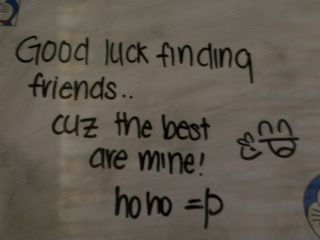 Good luck finding
friends..
cuz the best
are mine!
hoho =p